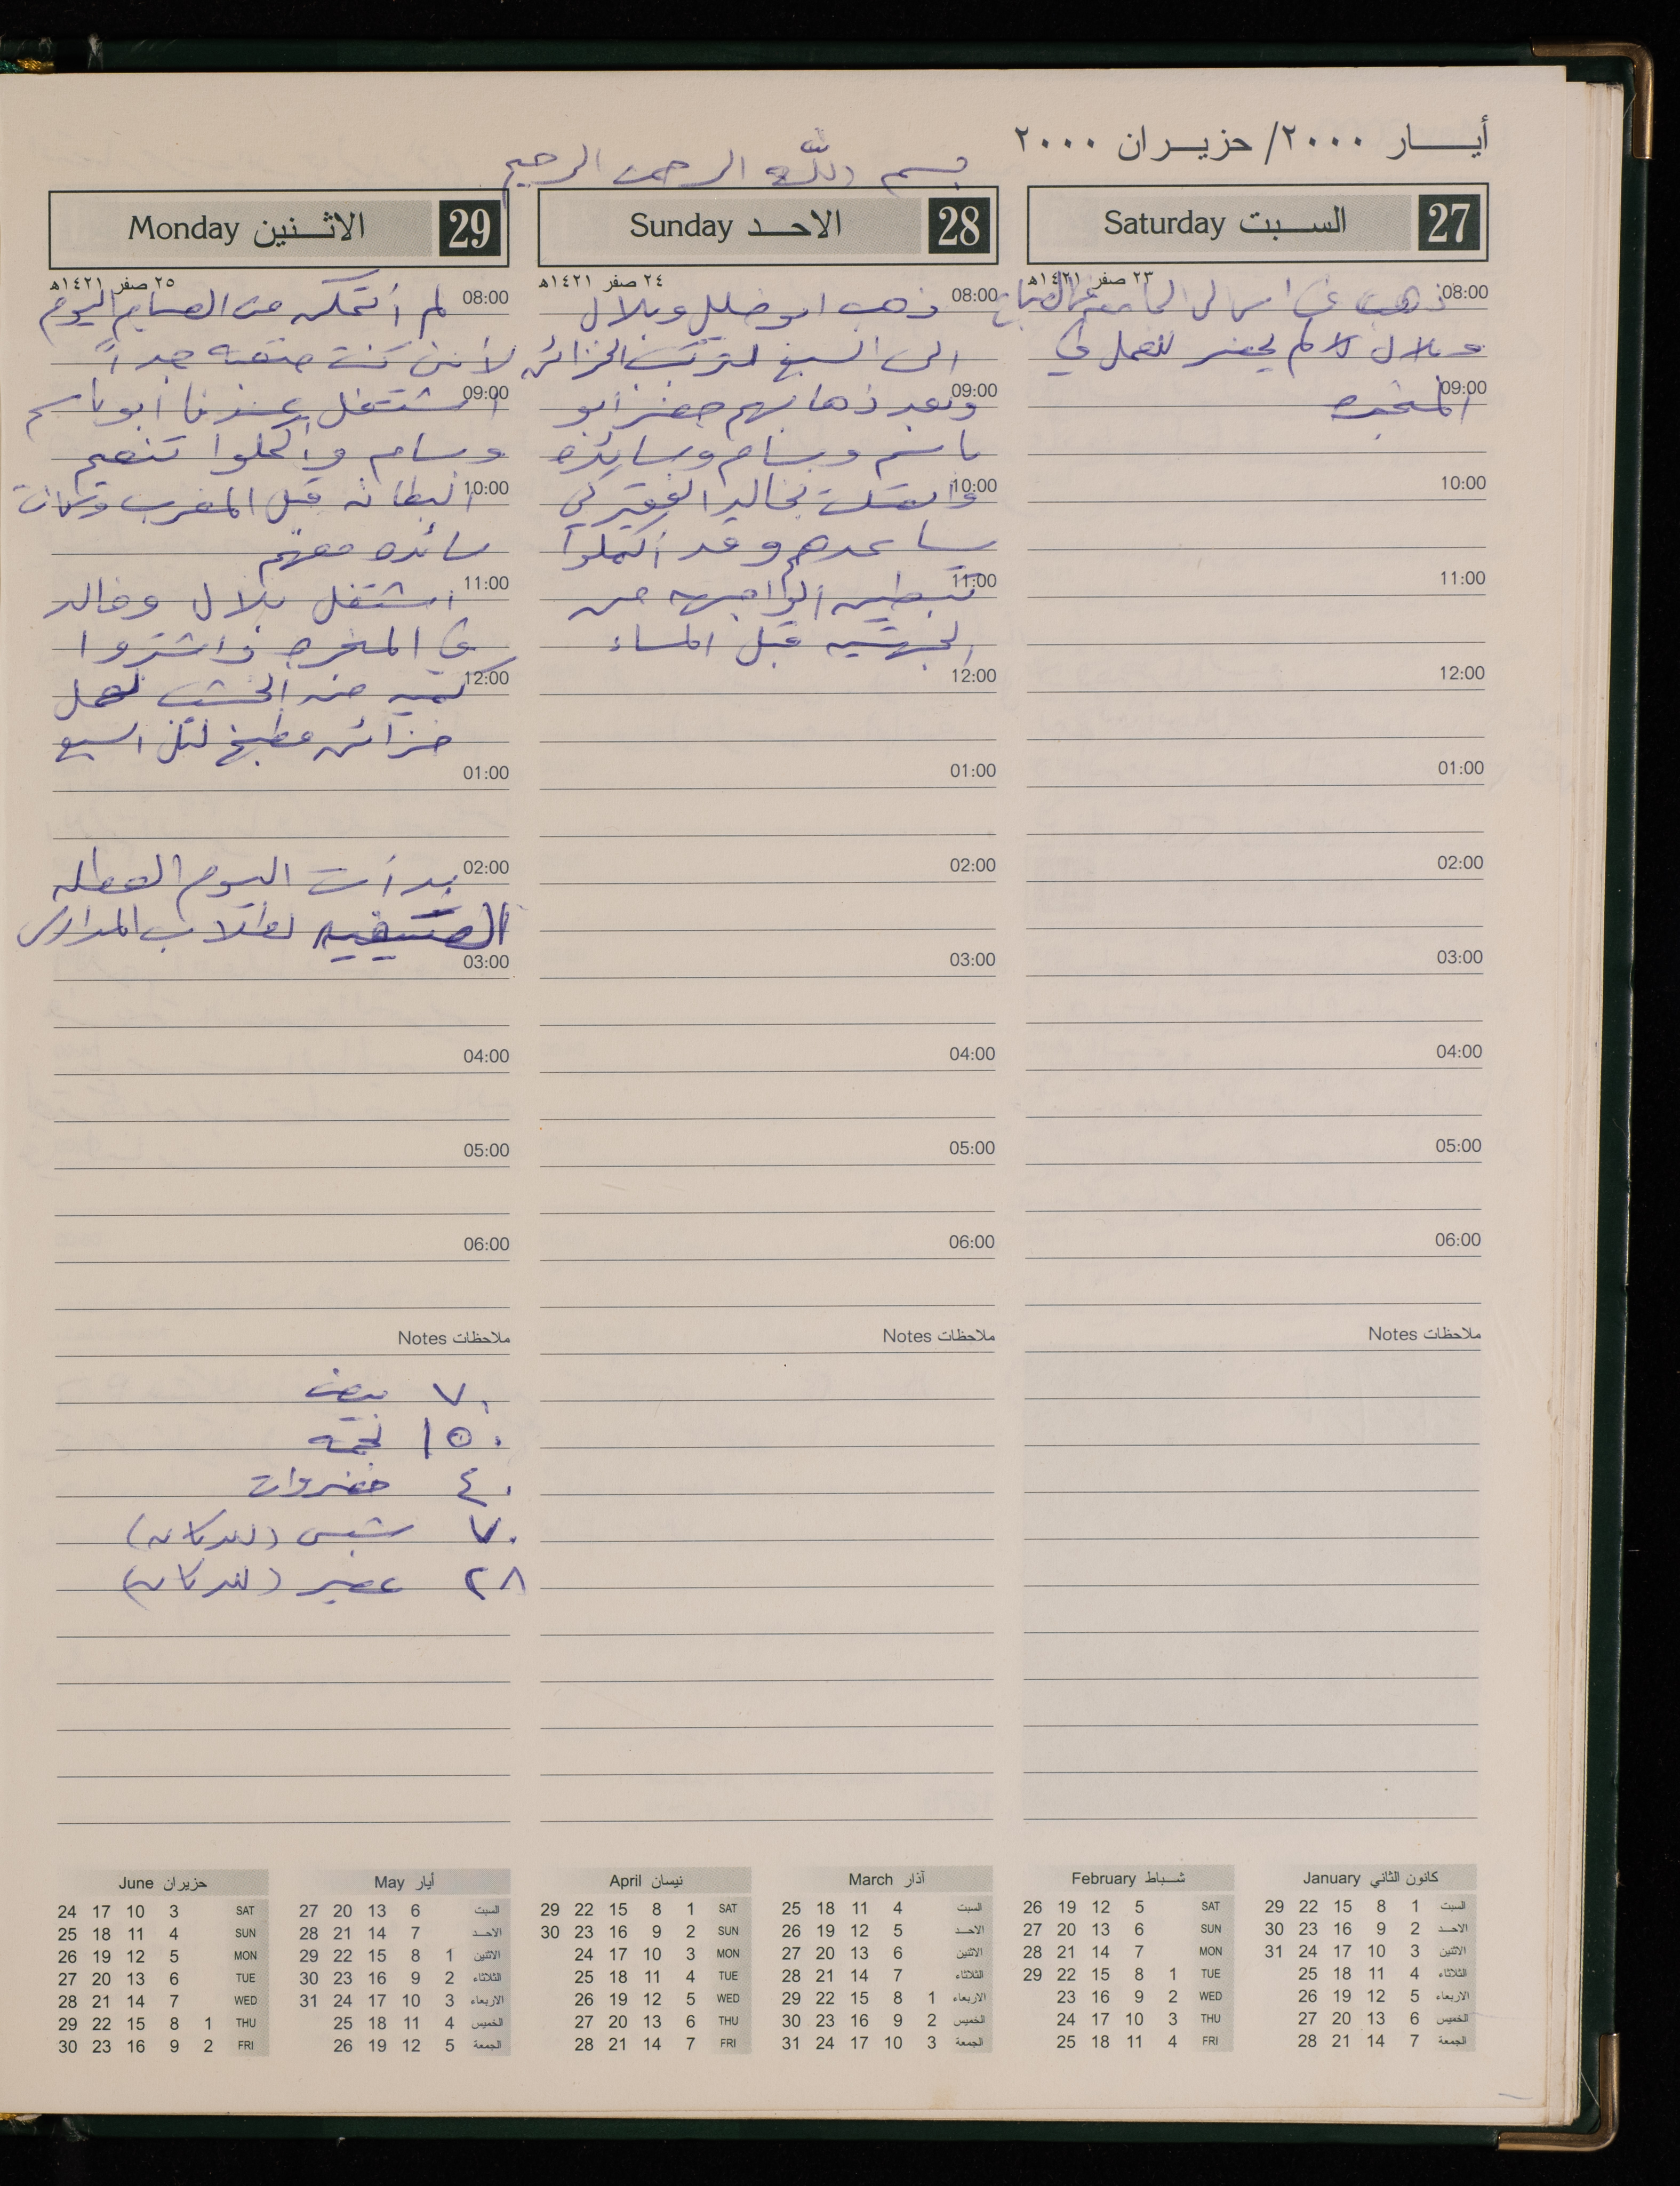 أيــار ٢٠٠٠/ حزيـران ٢٠٠٠
بسم الله الرحمن الرحيم
27 السـبت Saturday
٢٣ صفر ١٤٢١هـ
08:00 ذهب الى الجامعة في الصباح
وبلال لم يحضر للعمل في
09:00 المنجره
10:00
11:00
12:00
01:00
02:00
03:00
04:00
05:00
06:00
ملاحظات Notes
28 الاحـد Sunday
٢٤ صفر ١٤٢١هـ
08:00 ذهب ابو خليل وبلال
الى السبع لتركيب الخزائن
09:00 وبعد ذهابهم حضر ابو
باسم وبسام وسائده
10:00 واتصلت بخالد الفقير كي
يساعدهم وقد أكملوا
11:00 تبطين الواجهه من
الجهتين قبل المساء
12:00
01:00
02:00
03:00
04:00
05:00
06:00
ملاحظات Notes
29 الاثـنين Monday
٢٥ صفر ١٤٢١هـ
08:00 لم أتمكن من الصيام اليوم
لأنني كنت متعبه جداً
09:00 اشتغل عندنا ابو باسم
وبسام واكملوا تنعيم
10:00 البطانه قبل المغرب وكانت
سائده معهم
11:00 اشتغل بلال وخالد
في المنجره واشتروا
12:00 كميه من الخشب لعمل
خزائن مطبخ لتل السبع
01:00
02:00 بدأت اليوم العطله
الصيفيه لطلاب المدارس
03:00
04:00
05:00
06:00
ملاحظات Notes
٧٠ بيض
١٥٠ لحمه
٤٠ خضروات
٧٠ شبس (للدكان)
٢٨ عصير (للدكان)
كانون الثاني January
السبت 1 8 15 22 29
الاحـد 2 9 16 23 30
الاثنين 3 10 17 24 31
الثلاثاء 4 11 18 25
الاربعاء 5 12 19 26
الخميس 6 13 20 27
الجمعة 7 14 21 28
شـباط February
SAT 5 12 19 26
SUN 6 13 20 27
MON 7 14 21 28
TUE 1 8 15 22 29
WED 2 9 16 23
THU 3 10 17 24
FRI 4 11 18 25
آذار March
السبت 4 11 18 25
الاحـد 5 12 19 26
الاثنين 6 13 20 27
الثلاثاء 7 14 21 28
الاربعاء 1 8 15 22 29
الخميس 2 9 16 23 30
الجمعة 3 10 17 24 31
نيسان April
SAT 1 8 15 22 29
SUN 2 9 16 23 30
MON 3 10 17 24
TUE 4 11 18 25
WED 5 12 19 26
THU 6 13 20 27
FRI 7 14 21 28
أيار May
السبت 6 13 20 27
الاحـد 7 14 21 28
الاثنين 1 8 15 22 29
الثلاثاء 2 9 16 23 30
الاربعاء 3 10 17 24 31
الخميس 4 11 18 25
الجمعة 5 12 19 26
حزيران June
SAT 3 10 17 24
SUN 4 11 18 25
MON 5 12 19 26
TUE 6 13 20 27
WED 7 14 21 28
THU 1 8 15 22 29
FRI 2 9 16 23 30